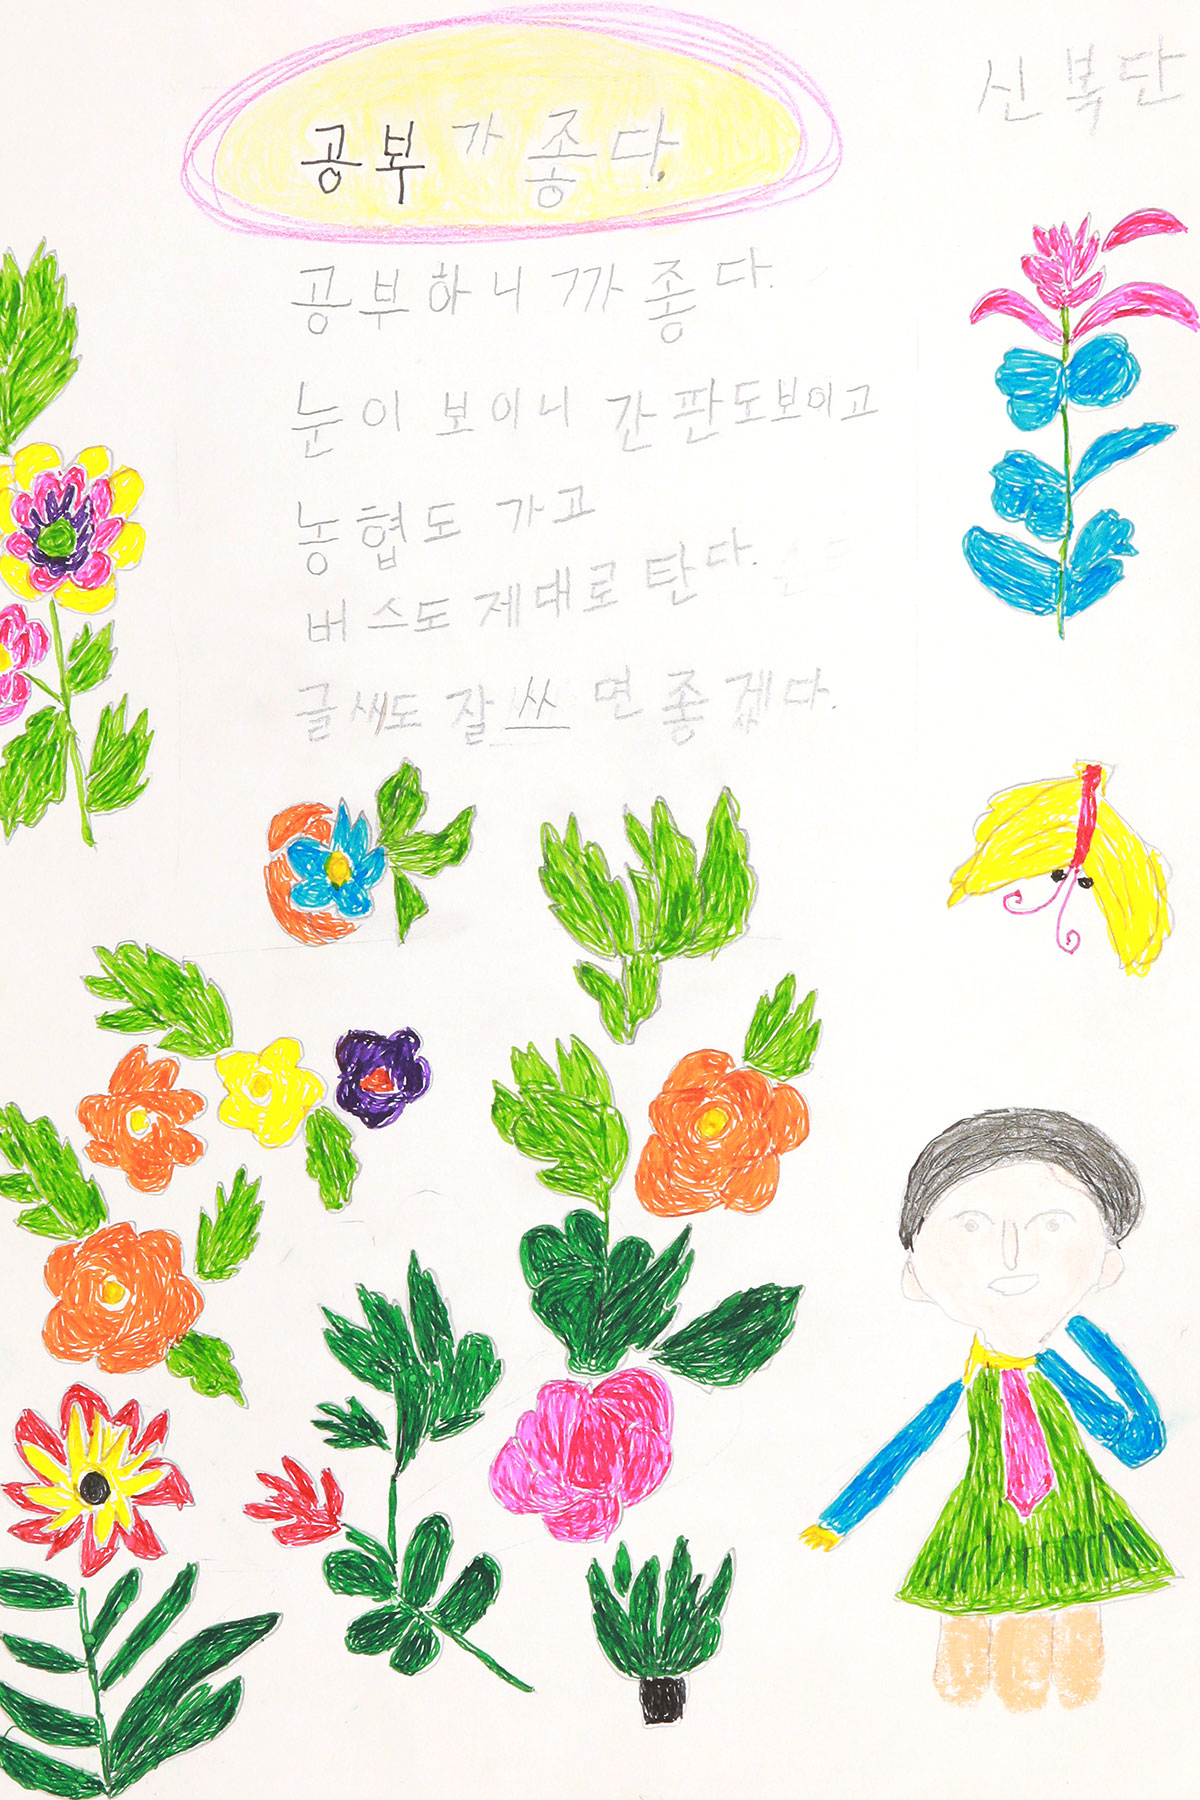 신복단
공부가 좋다.
공부하니까 좋다.
눈이 보이니 간판도보이고
농협도 가고
버스도 제대로 탄다.
글씨도 잘 쓰면 좋겠다.